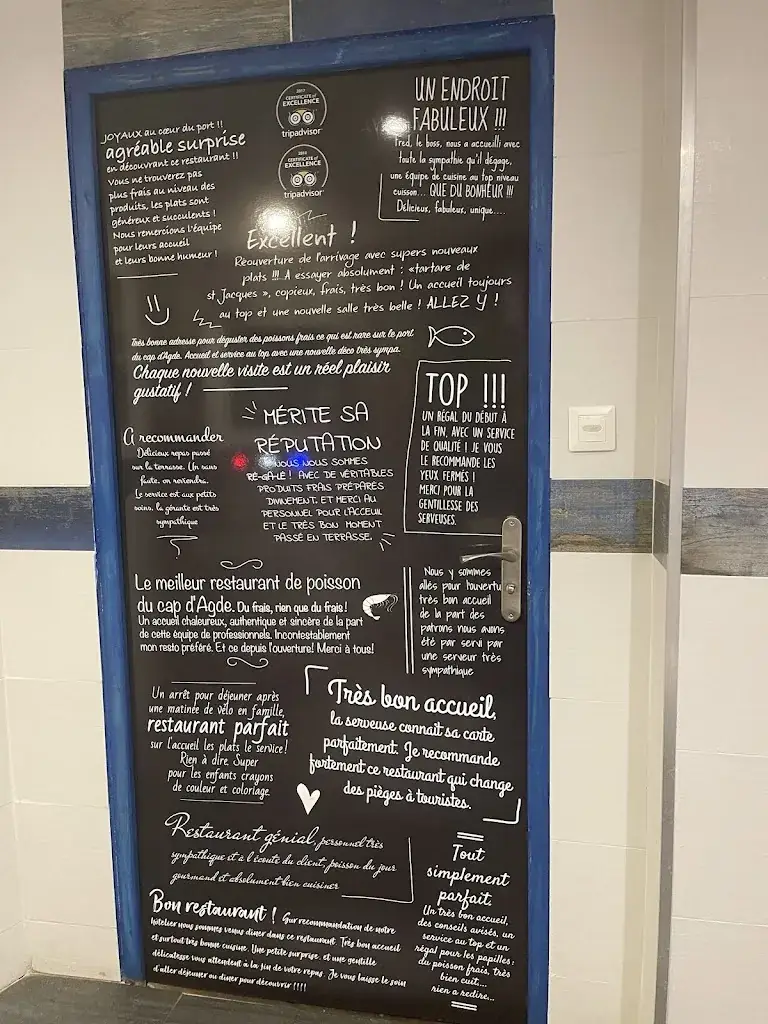 JOYAUX au cœur du port !!
agréable surprise
en découvrant ce restaurant !!
Vous ne trouverez pas
plus frais au niveau des
produits, les plats sont
généreux et succulents !
Nous remercions l'équipe
pour leurs accueil
et leurs bonne humeur !
2017
CERTIFICATE of
EXCELLENCE
tripadvisor
CERTIFICATE of
EXCELLENCE
tripadvisor
UN ENDROIT
FABULEUX !!!
Fred, le boss, nous a accueilli avec
toute la sympathie qu'il dégage,
une équipe de cuisine au top niveau
cuisson... QUE DU BONHEUR !!!
Délicieux, fabuleux, unique....
Excellent !
Réouverture de l'arrivage avec supers nouveaux
plats !!! A essayer absolument : «tartare de
st Jacques », copieux, frais, très bon ! Un accueil toujours
au top et une nouvelle salle très belle ! ALLEZ Y !
Très bonne adresse pour déguster des poissons frais ce qui est rare sur le port
du cap d'Agde. Accueil et service au top avec une nouvelle déco très sympa.
Chaque nouvelle visite est un réel plaisir
gustatif !
TOP !!!
UN RÉGAL DU DÉBUT À
LA FIN, AVEC UN SERVICE
DE QUALITÉ ! JE VOUS
LE RECOMMANDE LES
YEUX FERMÉS !
MERCI POUR LA
GENTILLESSE DES
SERVEUSES.
A recommander
Délicieux repas passé
sur la terrasse. Un sans
faute, on reviendra.
Le service est aux petits
soins, la gérante est très
sympathique
MÉRITE SA
RÉPUTATION
NOUS NOUS SOMMES
RÉ-GA-LÉ ! AVEC DE VÉRITABLES
PRODUITS FRAIS PRÉPARÉS
DIVINEMENT. ET MERCI AU
PERSONNEL POUR L'ACCEUIL
ET LE TRÈS BON MOMENT
PASSÉ EN TERRASSE.
Le meilleur restaurant de poisson
du cap d'Agde. Du frais, rien que du frais !
Un accueil chaleureux, authentique et sincère de la part
de cette équipe de professionnels. Incontestablement
mon resto préféré. Et ce depuis l'ouverture! Merci à tous!
Nous y sommes
allés pour l'ouvertu
très bon accueil
de la part des
patrons nous avons
été par servi par
une serveur très
sympathique
Un arrêt pour déjeuner après
une matinée de vélo en famille,
restaurant parfait
sur l'accueil les plats le service !
Rien à dire. Super
pour les enfants crayons
de couleur et coloriage.
Très bon accueil,
la serveuse connaît sa carte
parfaitement. Je recommande
fortement ce restaurant qui change
des pièges à touristes.
Restaurant génial, personnel très
sympathique et à l'écoute du client, poisson du jour
gourmand et absolument bien cuisiner
Tout
simplement
parfait.
Un très bon accueil,
des conseils avisés, un
service au top et un
régal pour les papilles:
du poisson frais, très
bien cuit...
rien a redire...
Bon restaurant ! Sur recommandation de notre
hôtelier nous sommes venus diner dans ce restaurant. Très bon accueil
et surtout très bonne cuisine. Une petite surprise, et une gentille
délicatesse vous attendent à la fin de votre repas. Je vous laisse le soin
d'aller déjeuner ou diner pour découvrir !!!!